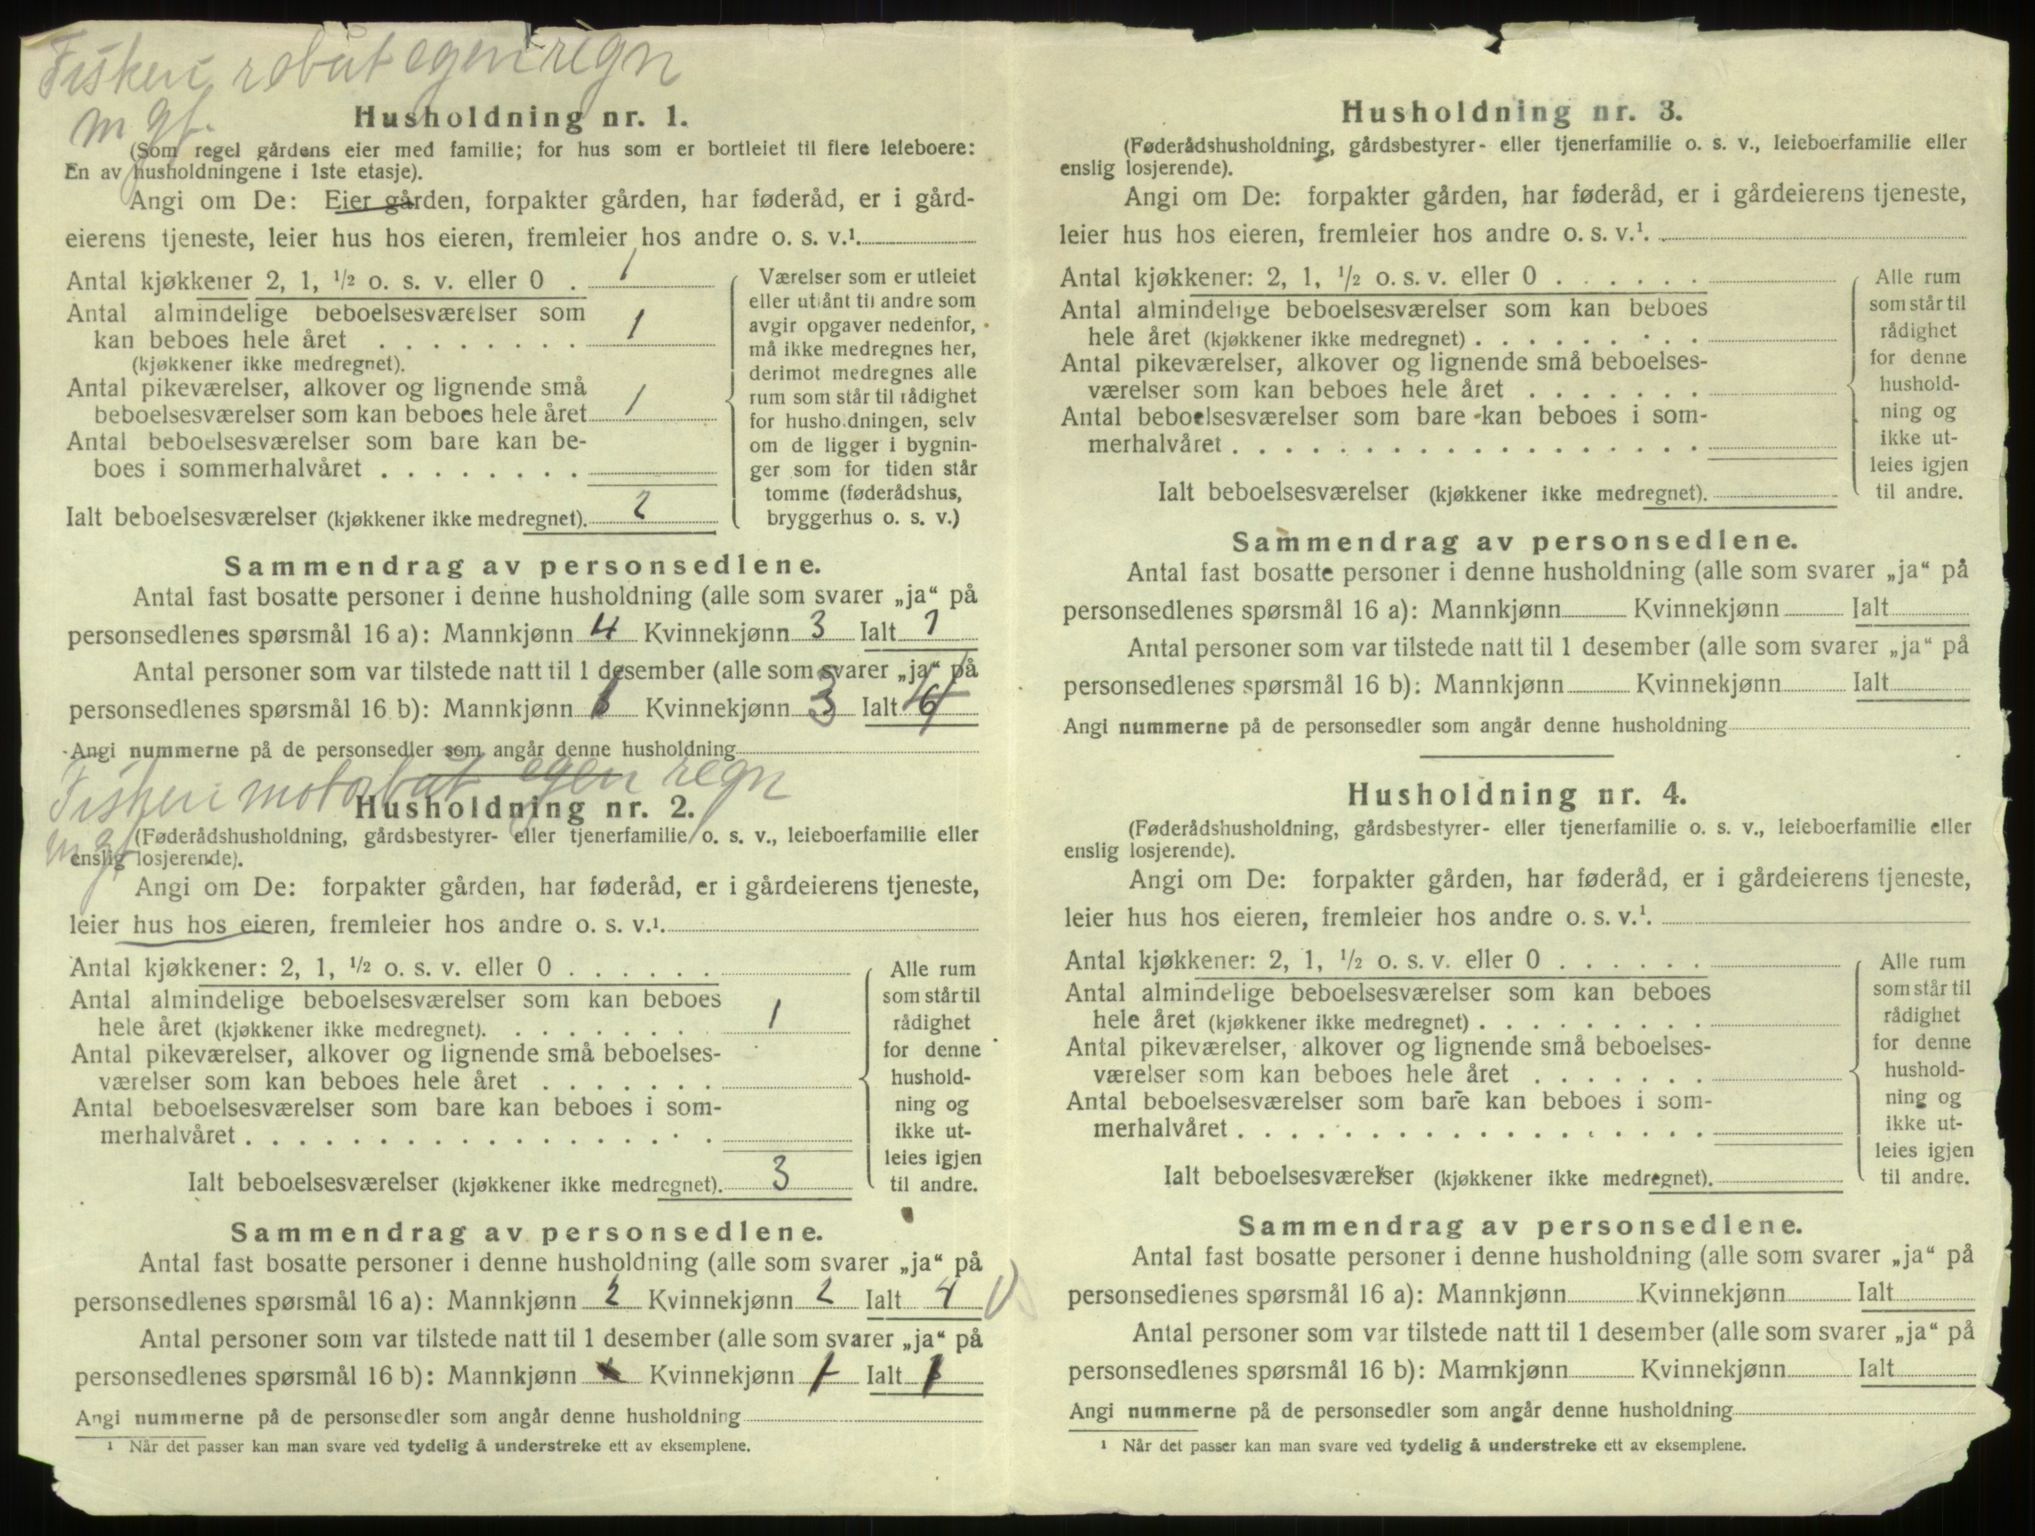 Fiskeri robåt egen regn
m gf.
Husholdning nr. 1.
(Som regel gårdens eier med familie; for hus som er bortleiet til flere leieboere:
En av husholdningene i 1ste etasje).
Angi om De: Eier gården, forpakter gården, har føderåd, er i gård-
eierens tjeneste, leier hus hos eieren, fremleier hos andre o. s. v.¹.
Antal kjøkkener 2, 1, ½ o. s. v. eller 0 . 1
Antal almindelige beboelsesværelser som
kan beboes hele året . . . . . . . . 1
(kjøkkener ikke medregnet).
Antal pikeværelser, alkover og lignende små
beboelsesværelser som kan beboes hele året 1
Antal beboelsesværelser som bare kan be-
boes i sommerhalvåret . . . . . . . .
Ialt beboelsesværelser (kjøkkener ikke medregnet). 2
Værelser som er utleiet
eller utlånt til andre som
avgir opgaver nedenfor,
må ikke medregnes her,
derimot medregnes alle
rum som står til rådighet
for husholdningen, selv
om de ligger i bygnin-
ger som for tiden står
tomme (føderådshus,
bryggerhus o. s. v.)
Sammendrag av personsedlene.
Antal fast bosatte personer i denne husholdning (alle som svarer „ja“ på
personsedlenes spørsmål 16 a): Mannkjønn 4 Kvinnekjønn 3 Ialt 7
Antal personer som var tilstede natt til 1 desember (alle som svarer „ja“ på
personsedlenes spørsmål 16 b): Mannkjønn Kvinnekjønn 3 Ialt
Angi nummerne på de personsedler som angår denne husholdning
Fiskeri motorbåt egen regn
m gf
Husholdning nr. 2.
(Føderådshusholdning, gårdsbestyrer- eller tjenerfamilie o. s. v., leieboerfamilie eller
enslig losjerende).
Angi om De: forpakter gården, har føderåd, er i gårdeierens tjeneste,
leier hus hos eieren, fremleier hos andre o. s. v.¹.
Antal kjøkkener: 2, 1, ½ o. s. v. eller 0 . . . . . .
Antal almindelige beboelsesværelser som kan beboes
hele året (kjøkkener ikke medregnet). . . . . . . . . 1
Antal pikeværelser, alkover og lignende små beboelses-
værelser som kan beboes hele året . . . . . . .
Antal beboelsesværelser som bare kan beboes i som-
merhalvåret . . . . . . . . . . . . . . . . . .
Ialt beboelsesværelser (kjøkkener ikke medregnet). 3
Alle rum
som står til
rådighet
for denne
hushold-
ning og
ikke ut-
leies igjen
til andre.
Sammendrag av personsedlene.
Antal fast bosatte personer i denne husholdning (alle som svarer „ja“ på
personsedlenes spørsmål 16 a): Mannkjønn 2 Kvinnekjønn 2 Ialt 4
Antal personer som var tilstede natt til 1 desember (alle som svarer „ja“ på
personsedlenes spørsmål 16 b): Mannkjønn Kvinnekjønn 1 Ialt 1
Angi nummerne på de personsedler som angår denne husholdning
¹ Når det passer kan man svare ved tydelig å understreke ett av eksemplene.
Husholdning nr. 3.
(Føderådshusholdning, gårdsbestyrer- eller tjenerfamilie o. s. v., leieboerfamilie eller
enslig losjerende).
Angi om De: forpakter gården, har føderåd, er i gårdeierens tjeneste,
leier hus hos eieren, fremleier hos andre o. s. v.¹.
Antal kjøkkener: 2, 1, ½ o. s. v. eller 0 . . . . . .
Antal almindelige beboelsesværelser som kan beboes
hele året (kjøkkener ikke medregnet) . . . . . . . . .
Antal pikeværelser, alkover og lignende små beboelses-
værelser som kan beboes hele året . . . . . . .
Antal beboelsesværelser som bare kan beboes i som-
merhalvåret . . . . . . . . . . . . . . . . . .
Ialt beboelsesværelser (kjøkkener ikke medregnet).
Alle rum
som står til
rådighet
for denne
hushold-
ning og
ikke ut-
leies igjen
til andre.
Sammendrag av personsedlene.
Antal fast bosatte personer i denne husholdning (alle som svarer „ja“ på
personsedlenes spørsmål 16 a): Mannkjønn Kvinnekjønn Ialt
Antal personer som var tilstede natt til 1 desember (alle som svarer „ja“ på
personsedlenes spørsmål 16 b): Mannkjønn Kvinnekjønn Ialt
Angi nummerne på de personsedler som angår denne husholdning
Husholdning nr. 4.
(Føderådshusholdning, gårdsbestyrer- eller tjenerfamilie o. s. v., leieboerfamilie eller
enslig losjerende).
Angi om De: forpakter gården, har føderåd, er i gårdeierens tjeneste,
leier hus hos eieren, fremleier hos andre o. s. v.¹.
Antal kjøkkener: 2, 1, ½ o. s. v. eller 0 . . . . . .
Antal almindelige beboelsesværelser som kan beboes
hele året (kjøkkener ikke medregnet) . . . . . . . . .
Antal pikeværelser, alkover og lignende små beboelses-
værelser som kan beboes hele året . . . . . . .
Antal beboelsesværelser som bare kan beboes i som-
merhalvåret . . . . . . . . . . . . . . . . . .
Ialt beboelsesværelser (kjøkkener ikke medregnet).
Alle rum
som står til
rådighet
for denne
hushold-
ning og
ikke ut-
leies igjen
til andre.
Sammendrag av personsedlene.
Antal fast bosatte personer i denne husholdning (alle som svarer „ja“ på
personsedlenes spørsmål 16 a): Mannkjønn Kvinnekjønn Ialt
Antal personer som var tilstede natt til 1 desember (alle som svarer „ja“ på
personsedlenes spørsmål 16 b): Mannkjønn Kvinnekjønn Ialt
Angi nummerne på de personsedler som angår denne husholdning
¹ Når det passer kan man svare ved tydelig å understreke ett av eksemplene.